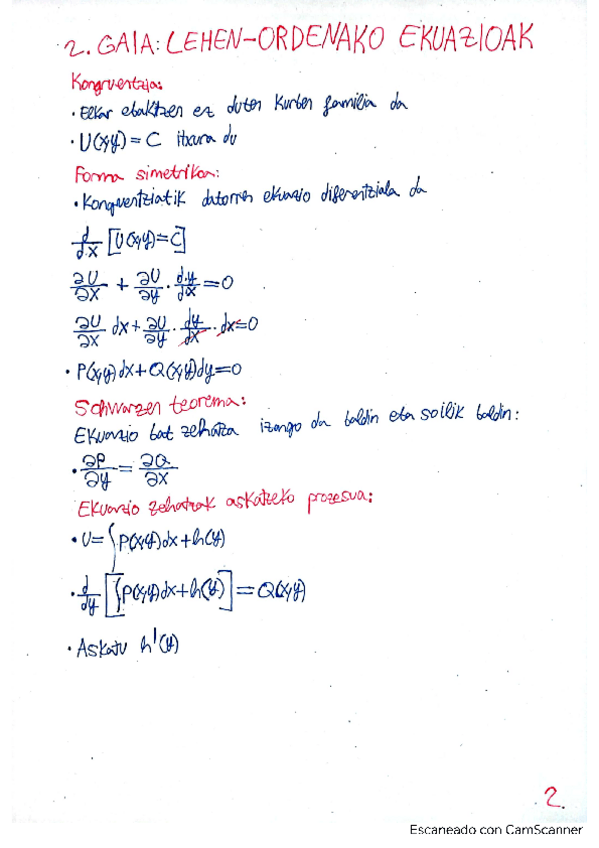 2. GAIA: LEHEN-ORDENAKO EKUAZIOAK
Kongruentzia:
• Elkar ebakitzen ez duten kurben familia da
• U(x,y) = C itxura du
Forma simetrikoa:
• Kongruentziatik datorren ekuazio diferentziala da
d/dx [U(x,y)=C]
∂U/∂x + ∂U/∂y · dy/dx = 0
∂U/∂x dx + ∂U/∂y · dy/dx · dx = 0
• P(x,y)dx + Q(x,y)dy = 0
Schwarzen teorema:
Ekuazio bat zehatza izango da baldin eta soilik baldin:
• ∂P/∂y = ∂Q/∂x
Ekuazio zehatzak askatzeko prozesua:
• U = ∫P(x,y)dx + h(y)
• d/dy [∫P(x,y)dx + h(y)] = Q(x,y)
• Askatu h'(y)
2.
Escaneado con CamScanner